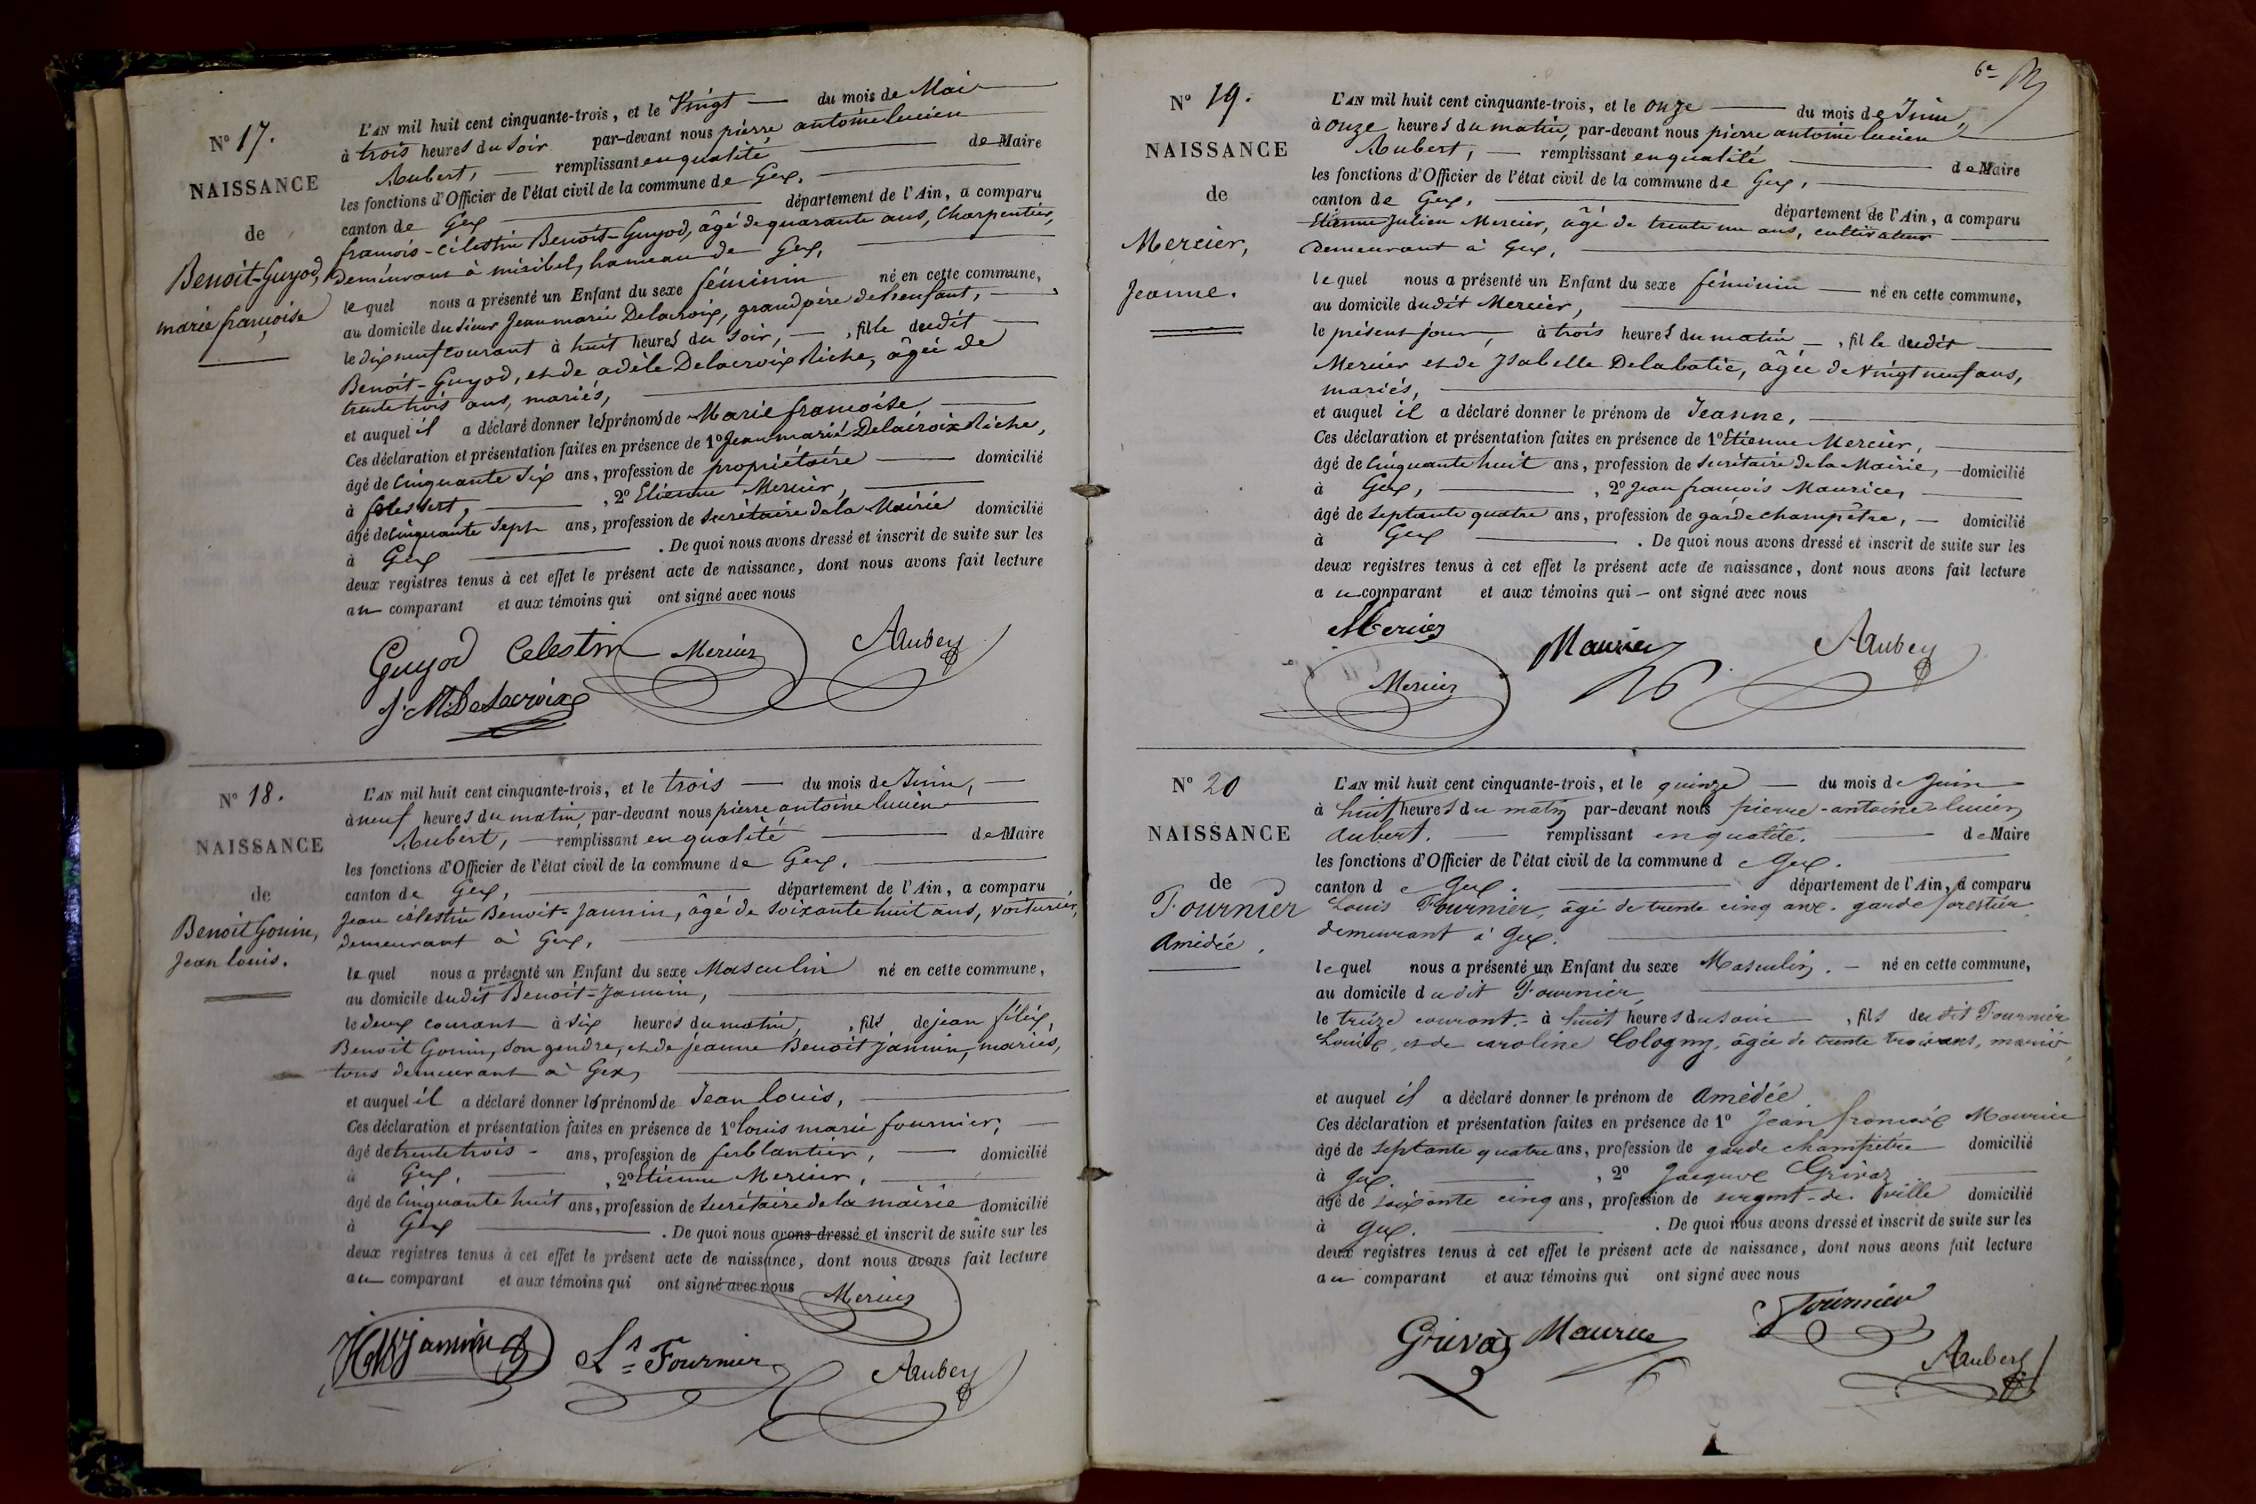 N° 17.
NAISSANCE
de
Benoit-Guyod,
marie françoise
L'AN mil huit cent cinquante-trois, et le Vingt du mois de Mai
à trois heures du soir par-devant nous pierre antoine lucien
Aubert, remplissant en qualité de Maire
les fonctions d'Officier de l'état civil de la commune de Gex,
canton de Gex département de l'Ain, a comparu
françois-célestin Benoit-Guyod, âgé de quarante ans, Charpentier,
demeurant à miribel, hameau de Gex,
lequel nous a présenté un Enfant du sexe féminin né en cette commune,
au domicile du sieur Jean marie Delacroix, grand père de l'enfant,
le dix neuf courant à huit heures du soir, , fille dudit
Benoit-Guyod, et de adèle Delacroix Riche, âgée de
trente trois ans, mariés,
et auquel il a déclaré donner les prénoms de Marie françoise
Ces déclaration et présentation faites en présence de 1° Jean marie Delacroix Riche,
âgé de Cinquante six ans, profession de propriétaire domicilié
à , 2° Etienne Mercier,
âgé de cinquante sept ans, profession de secrétaire de la Mairie domicilié
à Gex . De quoi nous avons dressé et inscrit de suite sur les
deux registres tenus à cet effet le présent acte de naissance, dont nous avons fait lecture
au comparant et aux témoins qui ont signé avec nous
Guyod Celestin Mercier AAubert
J. M. Delacroix
N° 18.
NAISSANCE
de
Benoit Gonin,
Jean louis.
L'AN mil huit cent cinquante-trois, et le trois du mois de Juin,
à neuf heures du matin, par-devant nous pierre antoine lucien
Aubert, remplissant en qualité de Maire
les fonctions d'Officier de l'état civil de la commune de Gex,
canton de Gex, département de l'Ain, a comparu
Jean célestin Benoit-Jannin, âgé de soixante huit ans, voiturier,
demeurant à Gex,
lequel nous a présenté un Enfant du sexe Masculin né en cette commune,
au domicile dudit Benoit-Jannin,
le deux courant à six heures du matin, , fils de jean félix,
Benoit Gonin, son gendre, et de jeanne Benoit Jannin, mariés,
tous demeurant à Gex,
et auquel il a déclaré donner les prénoms de Jean louis,
Ces déclaration et présentation faites en présence de 1° louis marie fournier,
âgé de trente trois ans, profession de ferblantier, domicilié
à Gex, , 2° Etienne Mercier,
âgé de Cinquante huit ans, profession de secrétaire de la mairie domicilié
à Gex . De quoi nous avons dressé et inscrit de suite sur les
deux registres tenus à cet effet le présent acte de naissance, dont nous avons fait lecture
au comparant et aux témoins qui ont signé avec nous
Mercier
jannin Ls Fournier AAubert
6e
N° 19.
NAISSANCE
de
Mercier,
Jeanne.
L'AN mil huit cent cinquante-trois, et le onze du mois de Juin,
à onze heures du matin, par-devant nous pierre antoine lucien
Aubert, remplissant en qualité de Maire
les fonctions d'Officier de l'état civil de la commune de Gex,
canton de Gex, département de l'Ain, a comparu
Etienne Julien Mercier, âgé de trente un ans, cultivateur
demeurant à Gex,
lequel nous a présenté un Enfant du sexe féminin né en cette commune,
au domicile dudit Mercier,
le présent jour, à trois heures du matin , fille dudit
Mercier et de Isabelle Delabatie, âgée de vingt neuf ans,
mariés,
et auquel il a déclaré donner le prénom de Jeanne,
Ces déclaration et présentation faites en présence de 1° Etienne Mercier,
âgé de Cinquante huit ans, profession de secrétaire de la Mairie, domicilié
à Gex, , 2° Jean françois Maurice,
âgé de septante quatre ans, profession de garde champêtre, domicilié
à Gex . De quoi nous avons dressé et inscrit de suite sur les
deux registres tenus à cet effet le présent acte de naissance, dont nous avons fait lecture
au comparant et aux témoins qui ont signé avec nous
Mercier Maurice AAubert
Mercier
N° 20
NAISSANCE
de
Fournier
Amédée.
L'AN mil huit cent cinquante-trois, et le quinze du mois de Juin
à huit heures du matin par-devant nous pierre-antoine-lucien
Aubert. remplissant en qualité. de Maire
les fonctions d'Officier de l'état civil de la commune de Gex.
canton de Gex. département de l'Ain, a comparu
Louis Fournier, âgé de trente cinq ans. garde forestier,
demeurant à Gex.
lequel nous a présenté un Enfant du sexe Masculin. né en cette commune,
au domicile dudit Fournier,
le treize courant. à huit heures du soir , fils dudit Fournier
Louis, et de caroline Cologny, âgée de trente trois ans, mariés,
et auquel il a déclaré donner le prénom de amédée
Ces déclaration et présentation faites en présence de 1° Jean françois Maurice
âgé de septante quatre ans, profession de garde champêtre domicilié
à Gex. , 2° Jacques Grivaz
âgé de soixante cinq ans, profession de sergent-de ville domicilié
à Gex. . De quoi nous avons dressé et inscrit de suite sur les
deux registres tenus à cet effet le présent acte de naissance, dont nous avons fait lecture
au comparant et aux témoins qui ont signé avec nous
Grivaz Maurice Fournier
AAubert